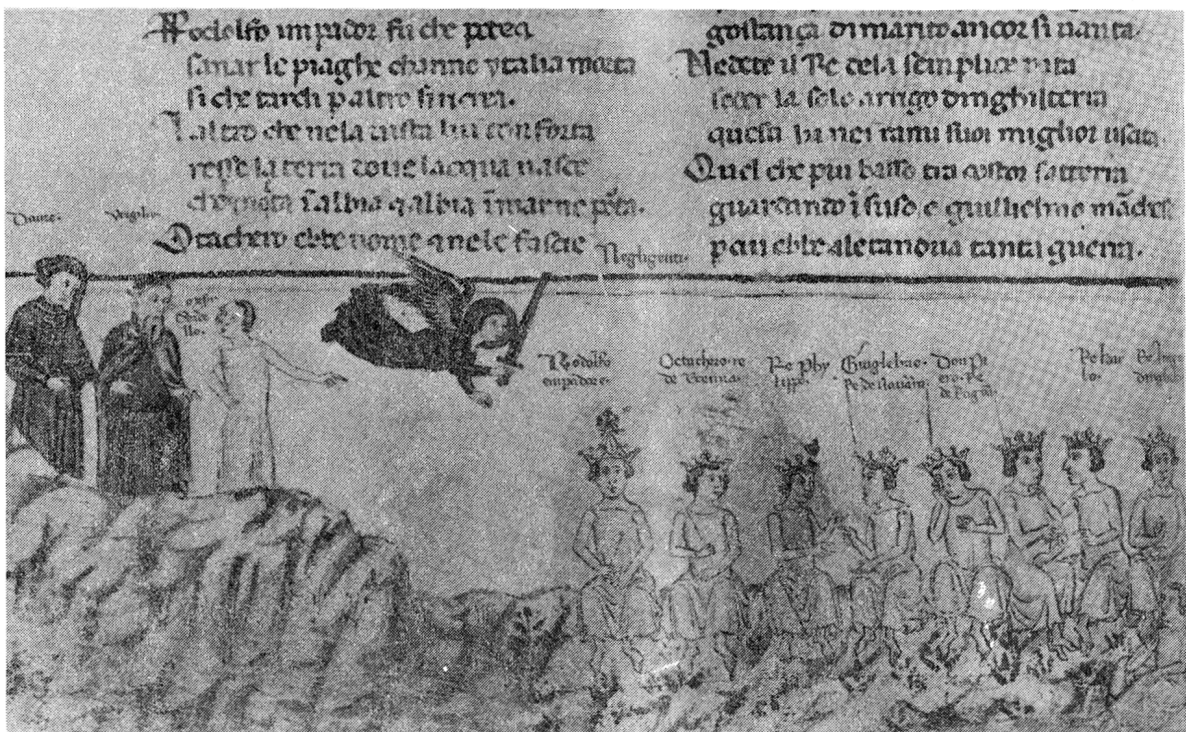 Rodolfo impador fu che potea
sanar le piaghe channo ytalia morta
si che tardi p altro si ricrea.
Laltro che nela uista lui conforta
resse la terra doue lacqua nasce
che molta ī albia q albia ī mare pōta.
Otachero ebbe nome q nele fascie
gostança di marito ancor si uanta.
Vedete il Re dela semplice uita
seder la solo arrigo dinghilterra
questi ha nei rami suoi miglior uscita.
Quel che piu basso tra costor satterra
guardando ī suso e guilliemo
p cui ebbe alexandria tanta guerra.
Dante.
Virgilio
Negligenti.
Rodolfo
empadore.
Octachero re
de
Re Phy
lippo.
Guiglelmo
Re de Nauara.
Don Pi
ero Re
de
Re Kar
lo.